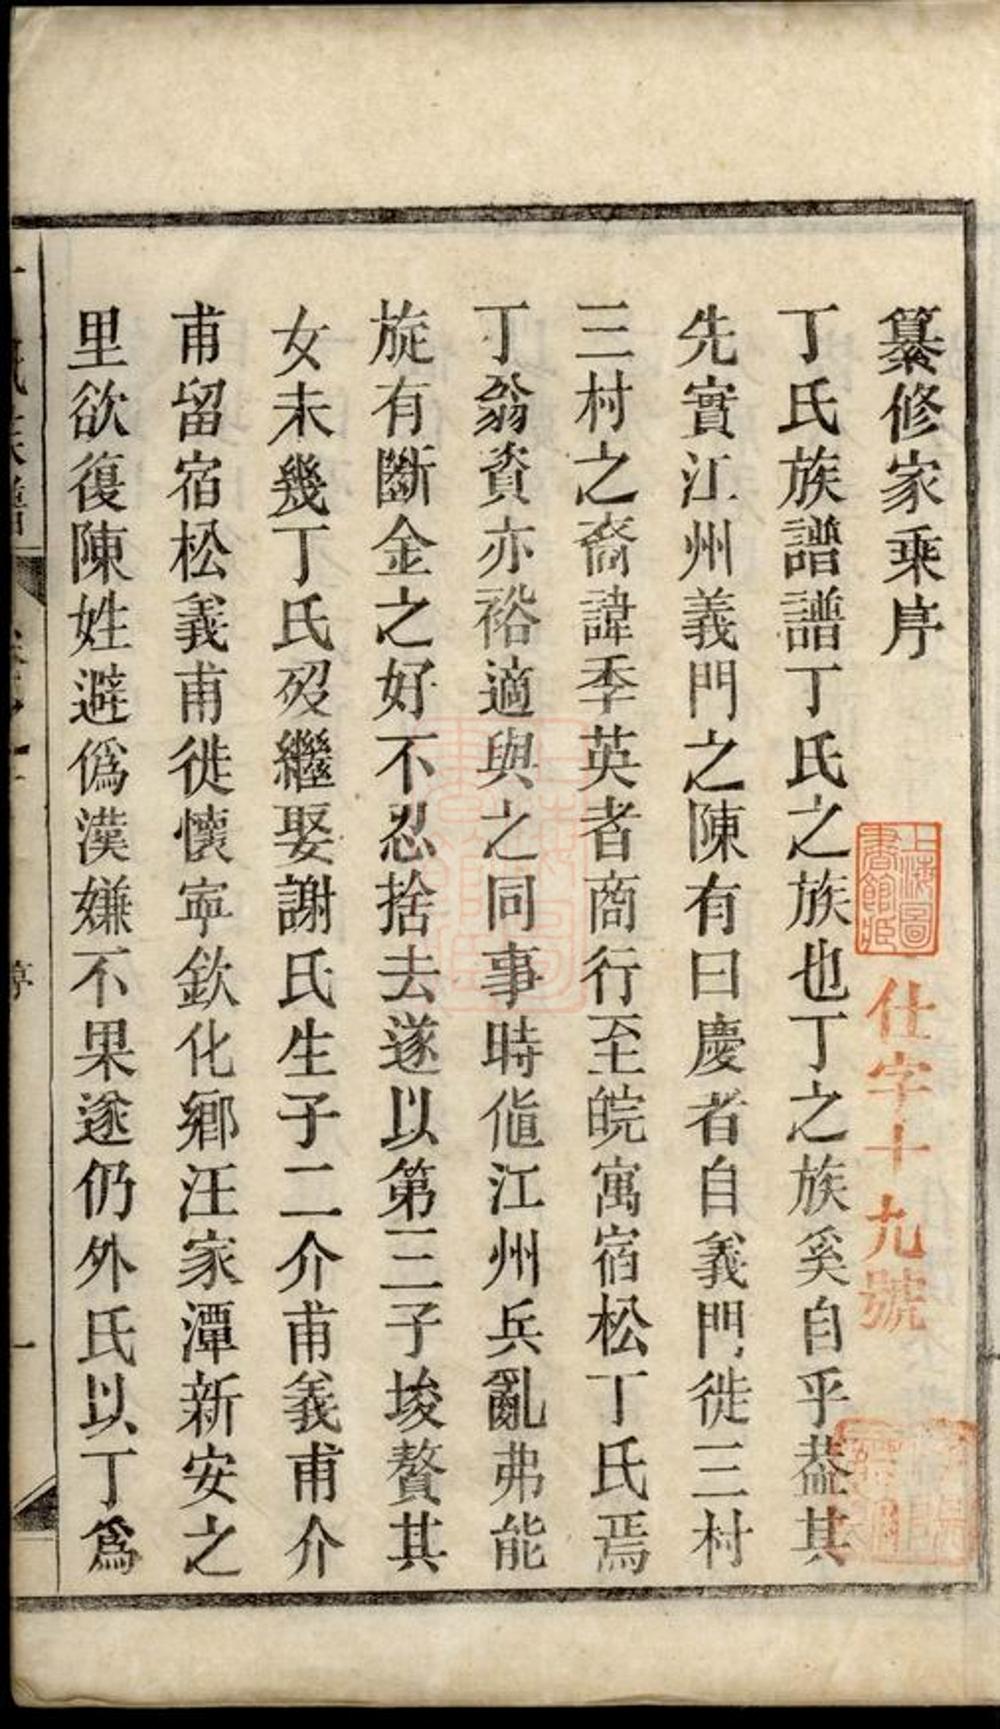 纂修家乘序
丁氏族譜譜丁氏之族也丁之族奚自乎葢其
先實江州義門之陳有曰慶者自義門徙三村
三村之裔諱季英者商行至皖寓宿松丁氏焉
丁翁資亦裕適與之同事時値江州兵亂弗能
旋有斷金之好不忍捨去遂以第三子埈贅其
女未幾丁氏歿繼娶謝氏生子二介甫義甫介
甫留宿松義甫徙懷寧欽化鄉汪家潭新安之
里欲復陳姓避僞漢嫌不果遂仍外氏以丁爲
上海圖書館藏
仕字十九號
序
一